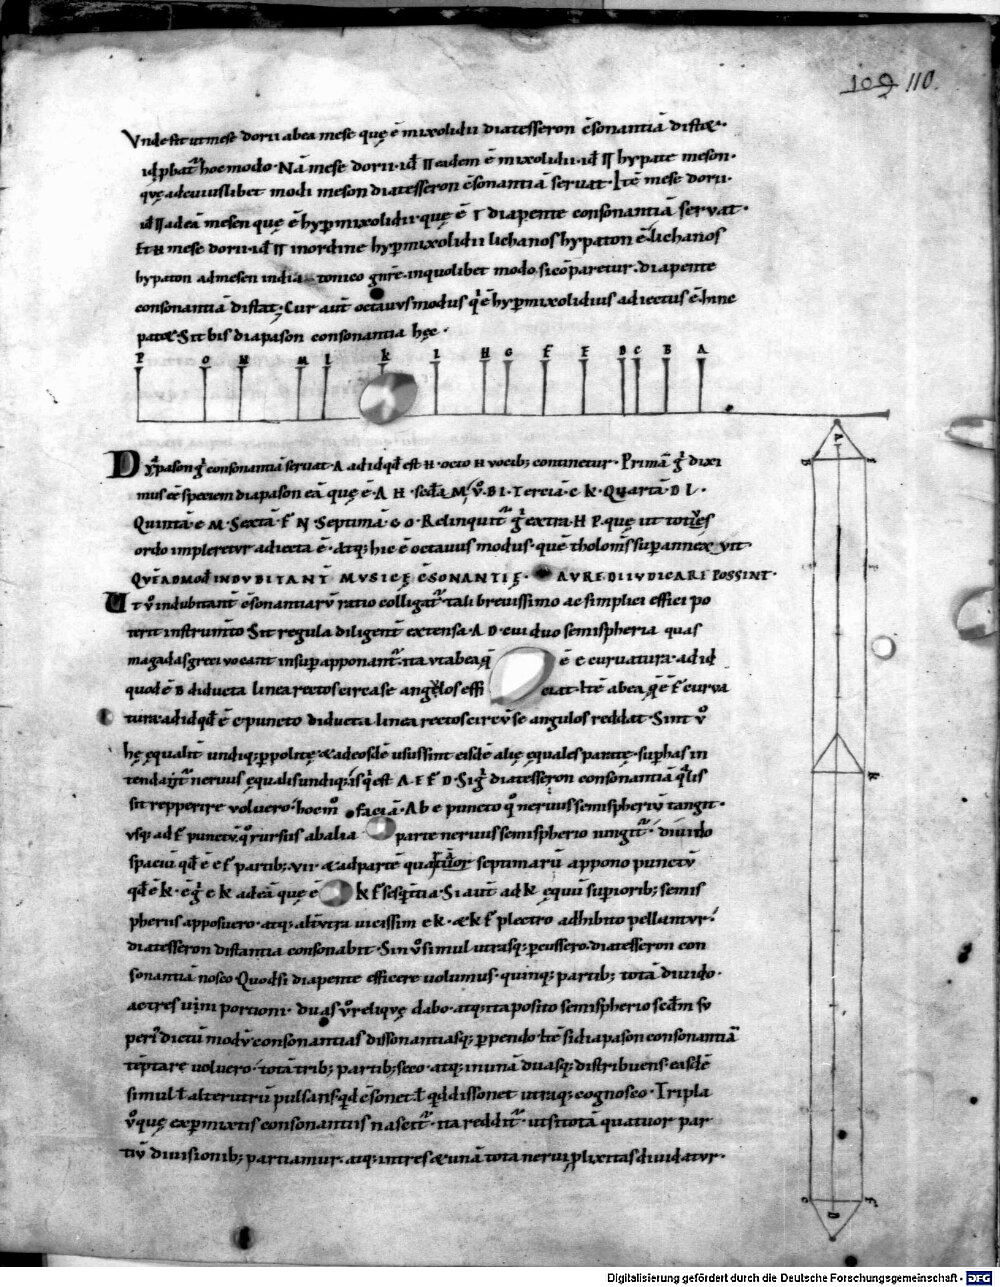 109 110.
Vnde fit ut mese dorii ab ea mese quę ē mixolidii diatesseron c̄sonantiā distet.
id p̱bat᷑ hoc modo. Nā mese dorii. id Π eadem ē mixolidii. id Π hypate meson.
quę ad cuiuslibet modi meson diatesseron c̄sonantiā seruat. Itē mese dorii.
id Π ad eā mesen quę ē hyꝑmixolidii quę ē Γ diapente consonantiā seruat.
Et H mese dorii. id Π in ordine hyꝑmixolidii lichanos hypaton ē. lichanos
hypaton ad mesen in diatonico gn̄re in quolibet modo si cōparetur. diapente
consonantiā distat. Cur aut̄ octauus modus q́ ē hyꝑmixolidius adiectus ē. Inne
patet. Sit bis diapason consonantia hęc.
P O N M L K I H G F E D C B A
Dyapason g̓ consonantiā seruat. A ad id qđ est H. octo n̄ uocib; continetur. Primā g̓ dixi
mus eē speciem diapason eā quę ē. A H. sc̄dā v̓. B I. Terciā. C K. Quartā. D L.
Quintā. E M. Sextā. F N. Septimā. G O. Relinquit᷑ g̓ extra. H P. quę ut totus
ordo impleretur adiecta ē. Atq; hic ē octauus modus. quē tholom̄s suꝑannexuit.
QVĒADMOĐ INDVBITANT̄ MVSICĘ C̄SONANTIĘ. AVRE DIIVDICARI POSSINT.
Ut v̓ indubitant̄ c̄sonantiarū ratio colligat᷑. tali breuissimo ac simplici effici po
terit instrum̄to. Sit regula diligent̄ extensa. A D. cui duo semispheria quas
magadas greci uocant insuꝑ apponant᷑. ita ut ab ea q̄
ē E curuatura. ad id
quod ē B diducta linea rectos circa se angulos effi
ciat. Itē ab ea. q̄ ē F curua
tura. ad id qđ ē C puncto diducta linea rectos circū se angulos reddat. Sint v̓
hę equalit̄ undiq; ꝑpolitę. & ad eosdē usus sint eisdē alię equales paratę. Suꝑ has in
tendat᷑ neruus equalis undiq;. is q́ est A. E F D. Si g̓ diatesseron consonantiā q̄lis
sit repperire uoluero. hoc m̊ faciā. Ab E puncto q̊ neruus semispheriū tangit.
usq; ad F punctū. q̊ rursus ab alia parte neruus semispherio iungit᷑. diuido
spaciū qđ ē E F partib; VII. & ad partē quattuor septimarū appono punctū
qđ ē K. ē g̓ E K ad eā quę ē K F sesq̓tercia. Si aut̄ ad K equū suꝑiorib; semis
pheriū apposuero. atq; alt̄utra uicissim E K. & K F plectro adhibito pellantur.
diatesseron distantia consonabit. Sin v̓ simul utrasq; ꝑcussero. diatesseron con
sonantiā nosco. Quodsi diapente efficere uolumus. quinq; partib; totā diuido.
ac tres uni portioni. duas v̓ reliquę dabo. atq; ita posito semispherio sc̄dm su
perī dictū modū consonantias dissonantiasq; ꝑpendo. Itē si diapason consonantiā
tēptare uoluero. totā trib; partib; seco. atq; in unā duasq; distribuens. easdē
simul l̄ alterutrū pulsans. quid c̄sonet. l̄ quid dissonet utrūq; cognosco. Tripla
v̓ quę ex ꝑmixtis consonantiis nascit᷑. ita reddit᷑. ut si totā quatuor par
tiū diuisionib; partiamur. atq; in tres & unā tota nerui ꝓlixitas diuidatur.
A
B
E
K
C
F
D
Digitalisierung gefördert durch die Deutsche Forschungsgemeinschaft - DFG